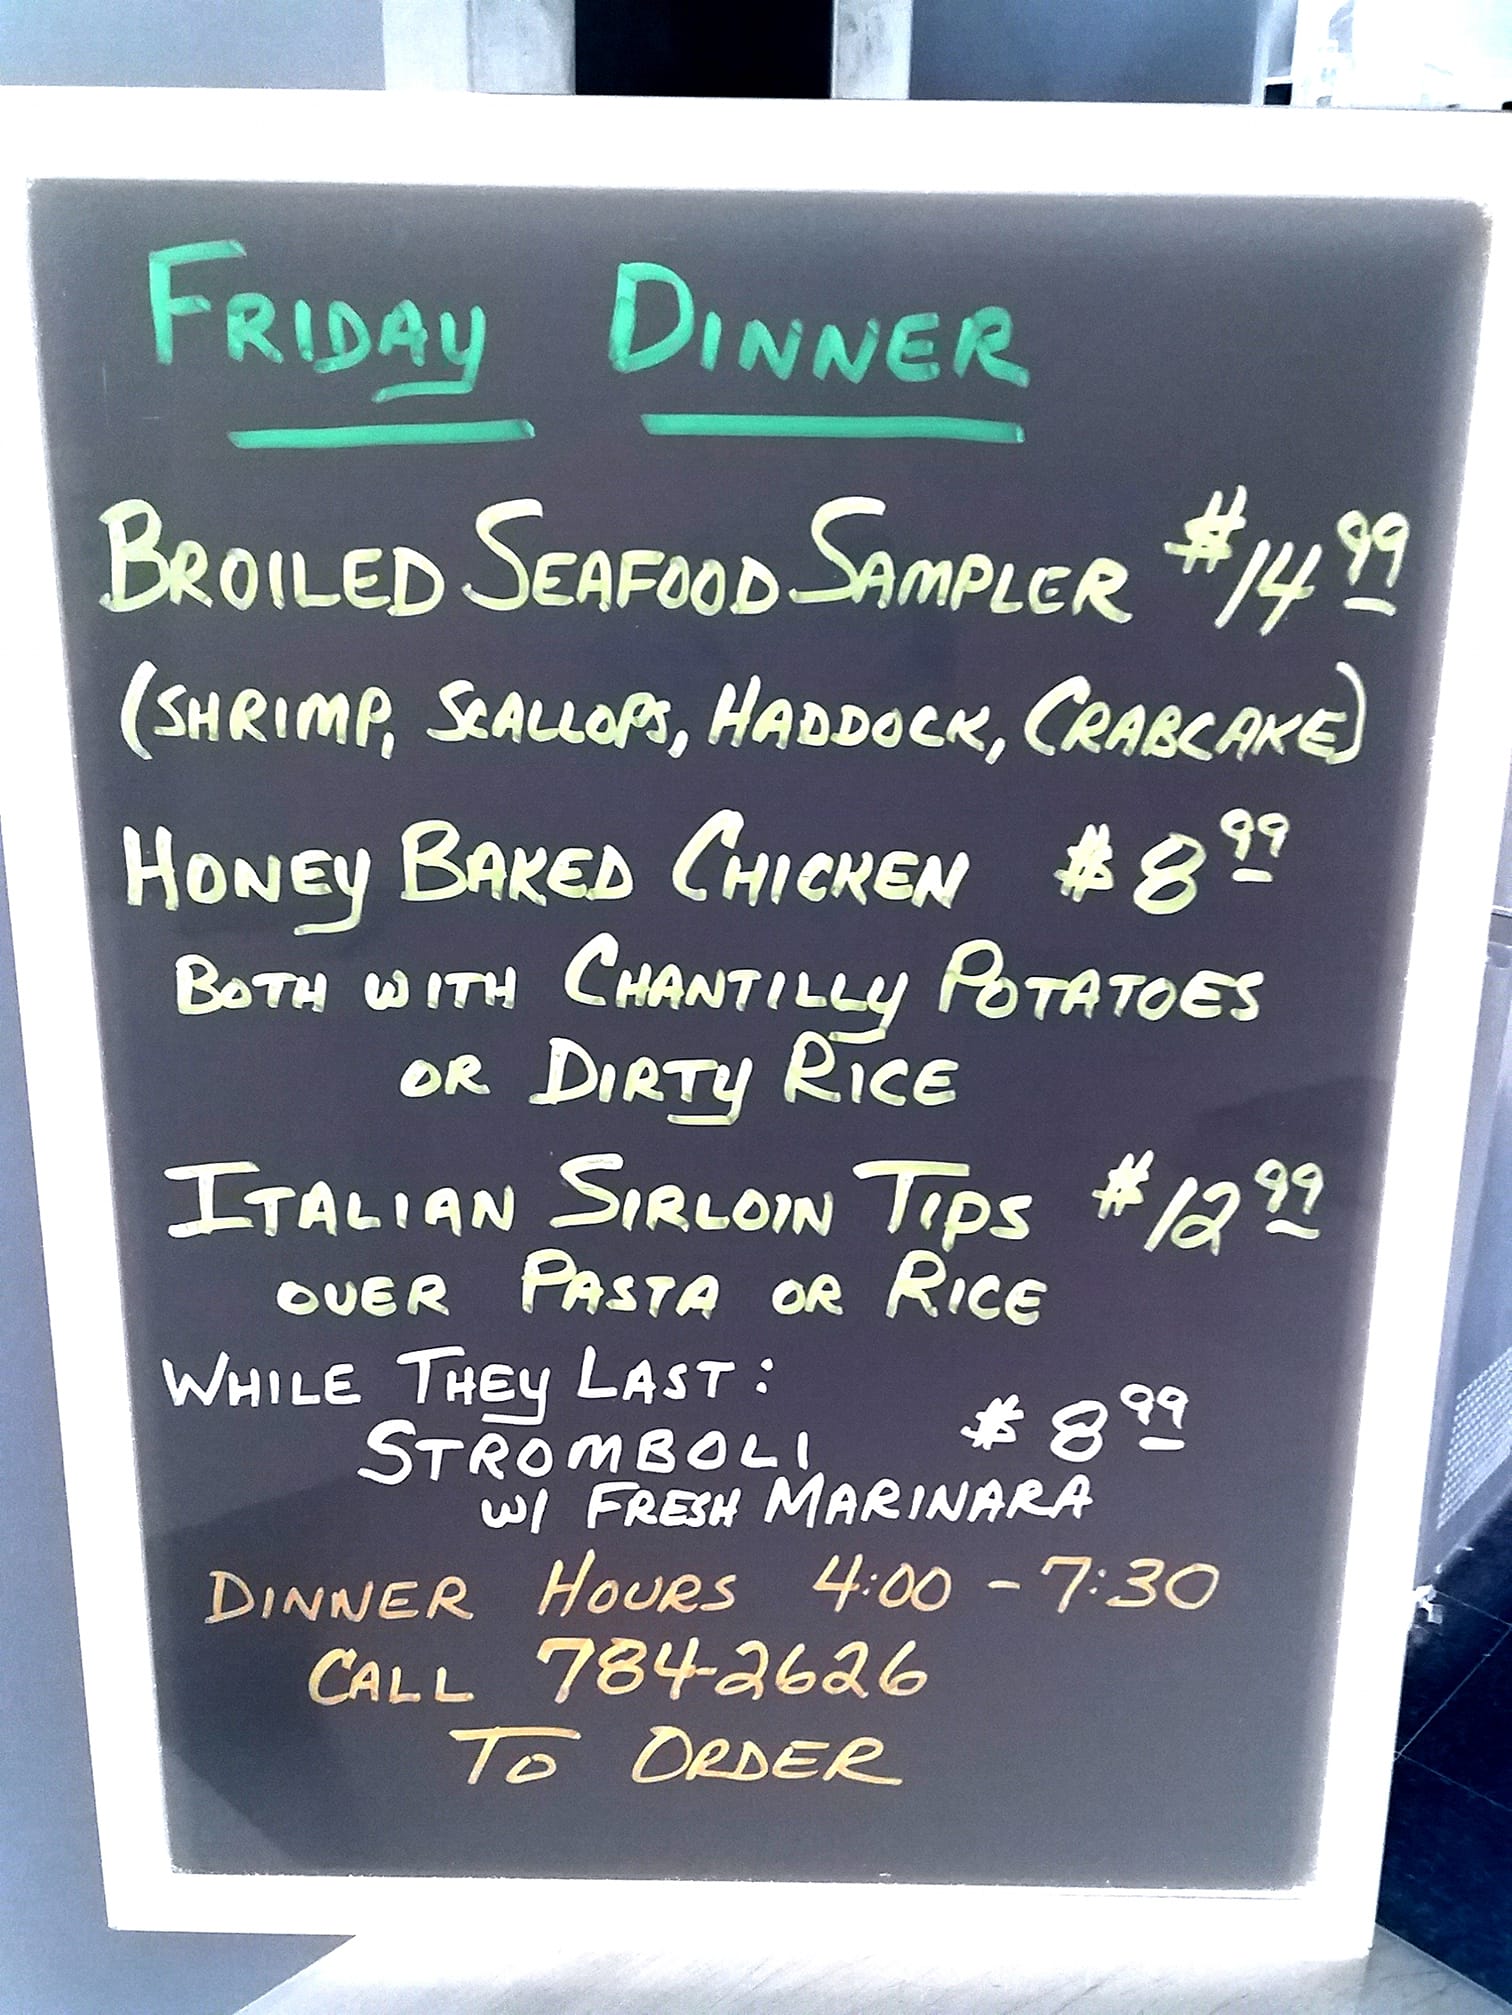 FRIDAY DINNER
BROILED SEAFOOD SAMPLER $14.99
(SHRIMP, SCALLOPS, HADDOCK, CRABCAKE)
HONEY BAKED CHICKEN $8.99
BOTH WITH CHANTILLY POTATOES
OR DIRTY RICE
ITALIAN SIRLOIN TIPS $12.99
OVER PASTA OR RICE
WHILE THEY LAST:
STROMBOLI $8.99
W/ FRESH MARINARA
DINNER HOURS 4:00 - 7:30
CALL 784-2626
TO ORDER